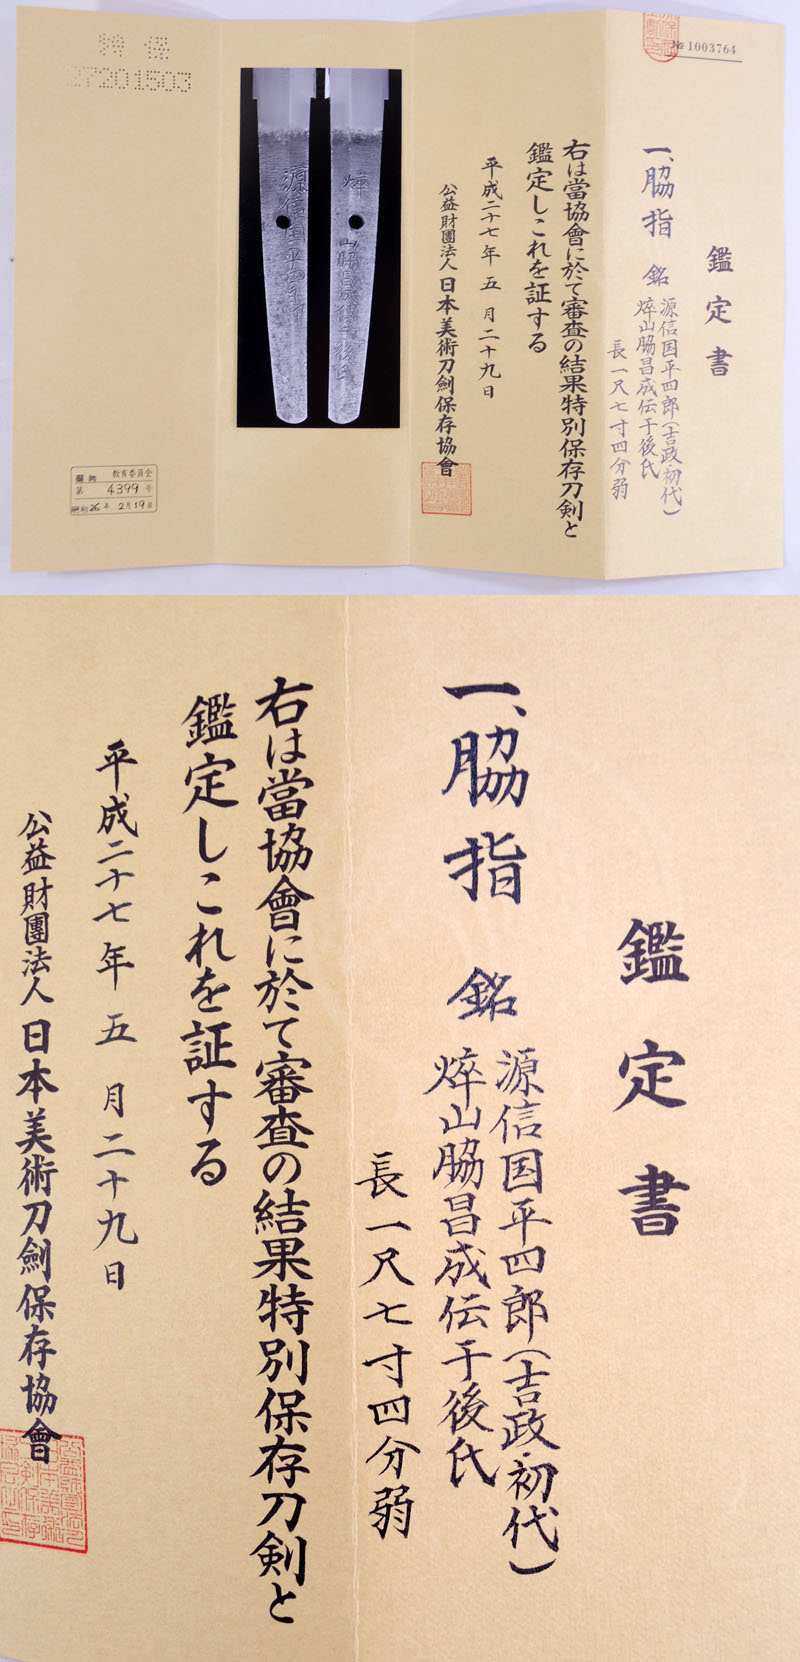 No 1003764
鑑定書
一、脇指 銘 源信国平四郎(吉政・初代)
焠山脇昌成伝于後氏
長一尺七寸四分弱
右は當協會に於て審査の結果特別保存刀剣と
鑑定しこれを証する
平成二十七年五月二十九日
公益財團法人日本美術刀劍保存協會
源信国平四郎
焠 山脇昌成傳于後氏
特保
27201503
教育委員会
第 4399 号
昭和26年2月19日
鑑定書
一、脇指 銘 源信国平四郎(吉政・初代)
焠山脇昌成伝于後氏
長一尺七寸四分弱
右は當協會に於て審査の結果特別保存刀剣と
鑑定しこれを証する
平成二十七年五月二十九日
公益財團法人日本美術刀劍保存協會